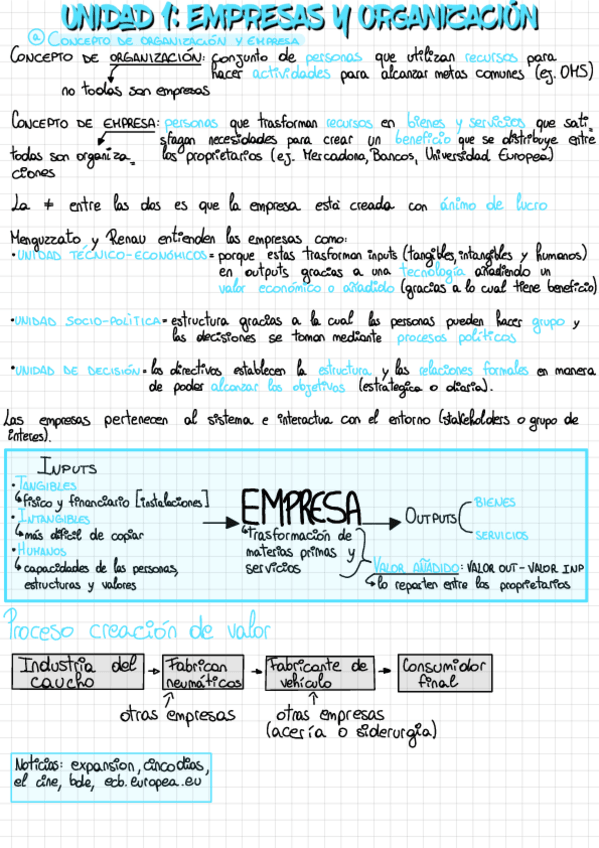 UNIDAD 1: EMPRESAS Y ORGANIZACIÓN
a) CONCEPTO DE ORGANIZACIÓN Y EMPRESA
CONCEPTO DE ORGANIZACIÓN: conjunto de personas que utilizan recursos para
hacer actividades para alcanzar metas comunes (ej. OMS)
no todas son empresas
CONCEPTO DE EMPRESA: personas que trasforman recursos en bienes y servicios que sati-
sfagan necesidades para crear un beneficio que se distribuye entre
todas son organiza- los proprietarios (ej. Mercadona, Bancos, Universidad Europea)
ciones
La ≠ entre las dos es que la empresa está creada con ánimo de lucro
Menguzzato y Renau entienden las empresas como:
·UNIDAD TÉCNICO-ECONÓMICOS= porque estas trasforman inputs (tangibles, intangibles y humanos)
en outputs gracias a una tecnología añadiendo un
valor económico o añadido (gracias a lo cual tiene beneficio)
·UNIDAD SOCIO-POLÍTICA= estructura gracias a la cual las personas pueden hacer grupo y
las decisiones se toman mediante procesos políticos
·UNIDAD DE DECISIÓN= los directivos establecen la estructura y las relaciones formales en manera
de poder alcanzar los objetivos (estrategica o diaria).
Las empresas pertenecen al sistema e interactua con el entorno (stakeholders o grupo de
interes).
INPUTS
·TANGIBLES
↳físico y financiario [instalaciones]
·INTANGIBLES
↳más difícil de copiar
·HUMANOS
↳capacidades de las personas,
estructuras y valores
EMPRESA
↳trasformación de
materias primas y
servicios
OUTPUTS
BIENES
SERVICIOS
VALOR AÑADIDO: VALOR OUT - VALOR INP
↳lo reparten entre los proprietarios
Proceso creación de valor
Industria del caucho → Fabrican neumáticos → Fabricante de vehículo → Consumidor final
otras empresas
otras empresas
(acería o siderurgia)
Noticias: expansion, cinco dias,
el cine, bde, ecb.europea.eu